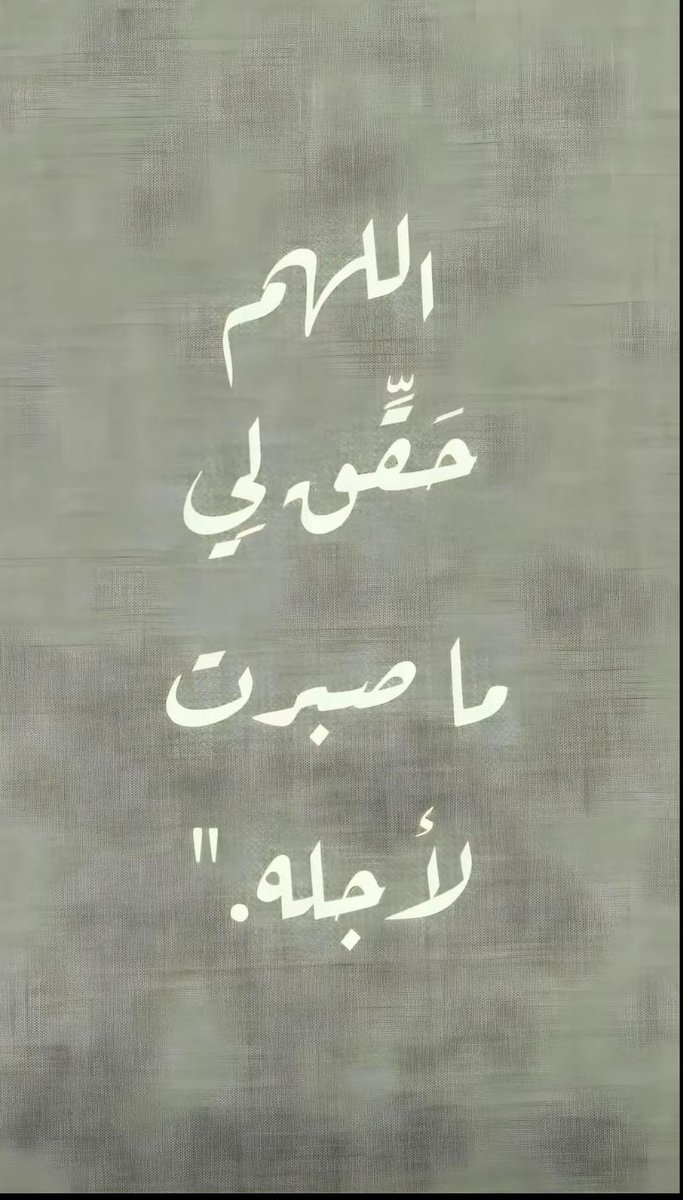 اللهم
حَقِّق لِي
ما صبرت
لأجله."